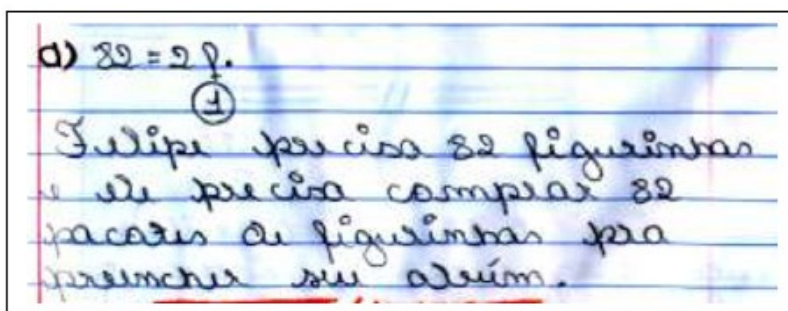 a) 82 = 2 f.
1
Felipe precisa 82 figurinhas
e ele precisa comprar 82
pacotes de figurinhas pra
preencher seu albúm.